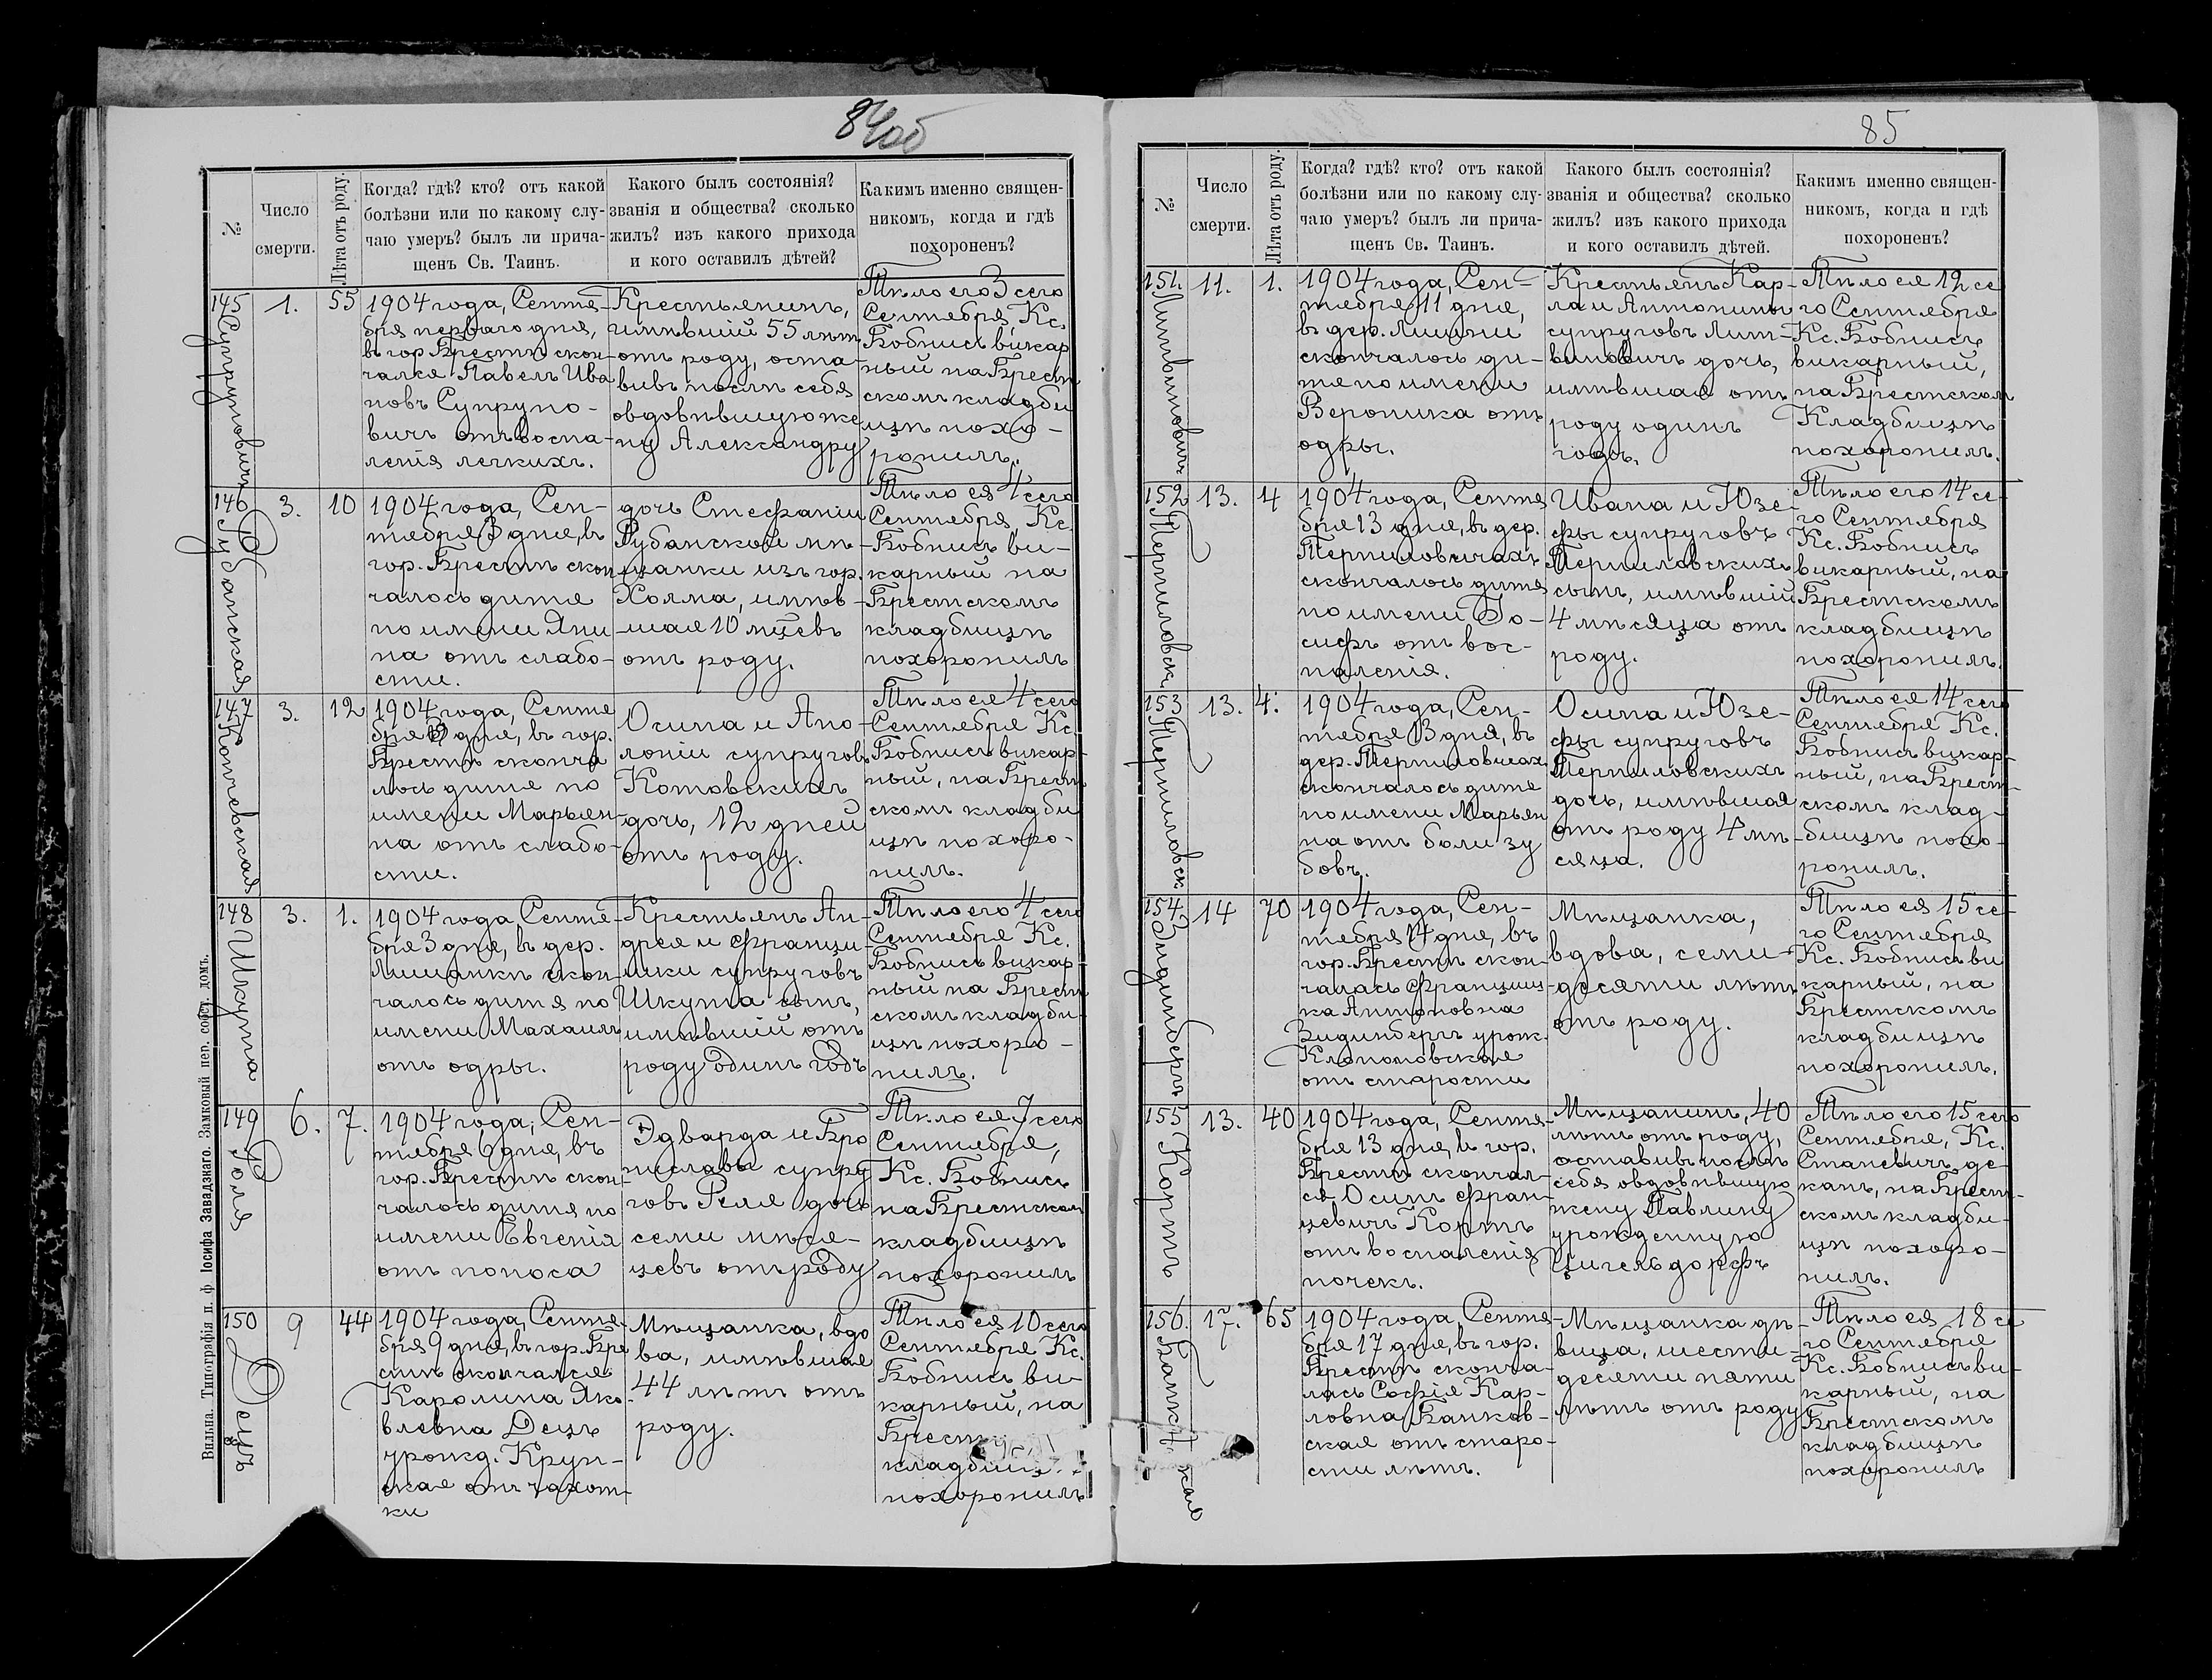 84об
№
Число
смерти.
Лѣта отъ роду.
Когда? гдѣ? кто? отъ какой
болѣзни или по какому слу-
чаю умеръ? былъ ли прича-
щенъ Св. Таинъ.
Какого былъ состоянія?
званія и общества? сколько
жилъ? изъ какого прихода
и кого оставилъ дѣтей?
Какимъ именно священ-
никомъ, когда и гдѣ
похороненъ?
145
Супруновичъ
1.
55
1904 года, Сентя-
бря перваго дня,
въ гор. Брестѣ скон-
чался Павелъ Ива
новъ Супруно-
вичъ отъ воспа-
ленія легкихъ.
Крестьянинъ,
имѣвшій 55 лѣтъ
отъ роду, оста-
вивъ послѣ себя
овдовѣвшую же
ну Александру
Тѣло его 3 сего
Сентября, Кс.
Бобнисъ викар
ный на Брест
скомъ кладби
щѣ похо-
ронилъ.
146
Рубанская
3.
10
1904 года, Сен-
тября 3 дня, въ
гор. Брестѣ скон
чалось дитя
по имени Яни
на отъ слабо-
сти.
дочь Стефаніи
Рубанской мѣ-
щанки изъ гор.
Холма, имѣв-
шая 10 мцевъ
отъ роду.
Тѣло ея 4 сего
Сентября, Кс.
Бобнисъ ви-
карный на
Брестскомъ
кладбищѣ
похоронилъ
147
3.
12
1904 года, Сентя
бря 3 дня, въ гор.
Брестѣ сконча
лось дитя по
имени Марьян-
на отъ слабо-
сти.
Осипа и Апо-
лоніи супруговъ
Котовскихъ
дочь, 12 дней
отъ роду.
Тѣло ея 4 сего
Сентября Кс.
Бобнисъ викар-
ный, на Брест
скомъ кладби
щѣ похоро-
нилъ.
148
Шкута
3.
1.
1904 года Сентя-
бря 3 дня, въ дер.
Лищанкѣ скон-
чалось дитя по
имени Махаилъ
отъ одры.
Крестьянъ Ан-
дрея и Франци-
шки супруговъ
Шкута сынъ,
имѣвшій отъ
роду одинъ годъ
Тѣло его 4 сего
Сентября Кс.
Бобнисъ викар-
ный на Брест
скомъ кладби-
щѣ похоро-
нилъ.
149
Роля
6.
7.
1904 года, Сен-
тября 6 дня, въ
гор. Брестѣ скон-
чалось дитя по
имени Евгенія
отъ поноса
Эдварда и Бро
ниславы супру
говъ Реля дочь
семи мѣся-
цевъ отъ роду
Тѣло ея 7 сего
Сентября,
Кс. Бобнисъ
на Брестском
кладбищѣ
похоронилъ
150
Децъ
9
44
1904 года, Сентя-
бря 9 дня, въ гор. Бре
стѣ скончался
Каролина Яко-
влевна Децъ
урожд. Круп-
ская отъ чахот-
ки
Мѣщанка, вдо
ва, имѣвшая
44 лѣтъ отъ
роду.
Тѣло ея 10 сего
Сентября Кс.
Бобнисъ ви-
карный, на
Брест
кладбищ
похоронилъ
Вильна. Типографія п. ф. Іосифа Завадзкаго. Замковый пер. собст. домъ.
85
№
Число
смерти.
Лѣта отъ роду.
Когда? гдѣ? кто? отъ какой
болѣзни или по какому слу-
чаю умеръ? былъ ли прича-
щенъ Св. Таинъ.
Какого былъ состоянія?
званія и общества? сколько
жилъ? изъ какого прихода
и кого оставилъ дѣтей.
Какимъ именно священ-
никомъ, когда и гдѣ
похороненъ?
151.
Литвиновичъ
11.
1.
1904 года, Сен-
тября 11 дня,
въ дер. Лищни
скончалось ди-
тя по имени
Вероника отъ
одры.
Крестьянъ Кар-
ла и Антонины
супруговъ Лит-
виновичъ дочь,
имѣвшая отъ
роду одинъ
годъ.
Тѣло ея 12 се
го Сентября
Кс. Бобнисъ
викарный,
на Брестском
Кладбищѣ
похоронилъ.
152
13.
4
1904 года, Сентя
бря 13 дня, въ дер.
скончалось дитя
по имени Іо-
сифъ отъ вос-
паленія.
Ивана и Юзе-
фы супруговъ
сынъ, имѣвшій
4 мѣсяца отъ
роду.
Тѣло его 14 се-
го Сентября
Кс. Бобнисъ
викарный, на
Брестскомъ
кладбищѣ
похоронилъ.
153
13.
4.
1904 года, Сен-
тября 13 дня, въ
дер.
скончалось дитя
по имени Марьян
на отъ боли зу
бовъ.
Осипа и Юзе-
фы супруговъ
дочь, имѣвшая
отъ роду 4 мѣ-
сяца.
Тѣло ея 14 сего
Сентября Кс.
Бобнисъ викар-
ный, на Брест-
скомъ клад-
бищѣ похо-
ронилъ.
154.
14
70
1904 года, Сен-
тября 14 дня, въ
гор. Брестѣ скон-
чалась Францишь
ка Антоновна
Зидинбергъ урож.
Клопоповская
отъ старости
Мѣщанка,
вдова, семи-
десяти лѣтъ
отъ роду.
Тѣло ея 15 се-
го Сентября
Кс. Бобнисъ ви
карный, на
Брестскомъ
кладбищѣ
похоронилъ.
155
Кортъ
13.
40
1904 года, Сентя-
бря 13 дня, въ гор.
Брестѣ скончал-
ся Осипъ Фран-
цевичъ Кортъ
отъ воспаленія
почекъ.
Мѣщанинъ, 40
лѣтъ отъ роду,
оставивъ послѣ
себя овдовѣвшую
жену Павлину
урожденную
Цигельдорфъ
Тѣло его 15 сего
Сентября, Кс.
Станевичъ де-
канъ, на Брест-
скомъ кладби-
щѣ похоро-
нилъ.
156.
17.
65
1904 года, Сентя-
бря 17 дня, въ гор.
Брестѣ сконча-
лась Софія Кар-
ловна Банков-
ская отъ старо-
сти лѣтъ.
Мѣщанка дѣ-
вица, шести-
десяти пяти
лѣтъ отъ роду
Тѣло ея 18 се
го Сентября
Кс. Бобнисъ ви-
карный, на
Брестскомъ
кладбищѣ
похоронилъ